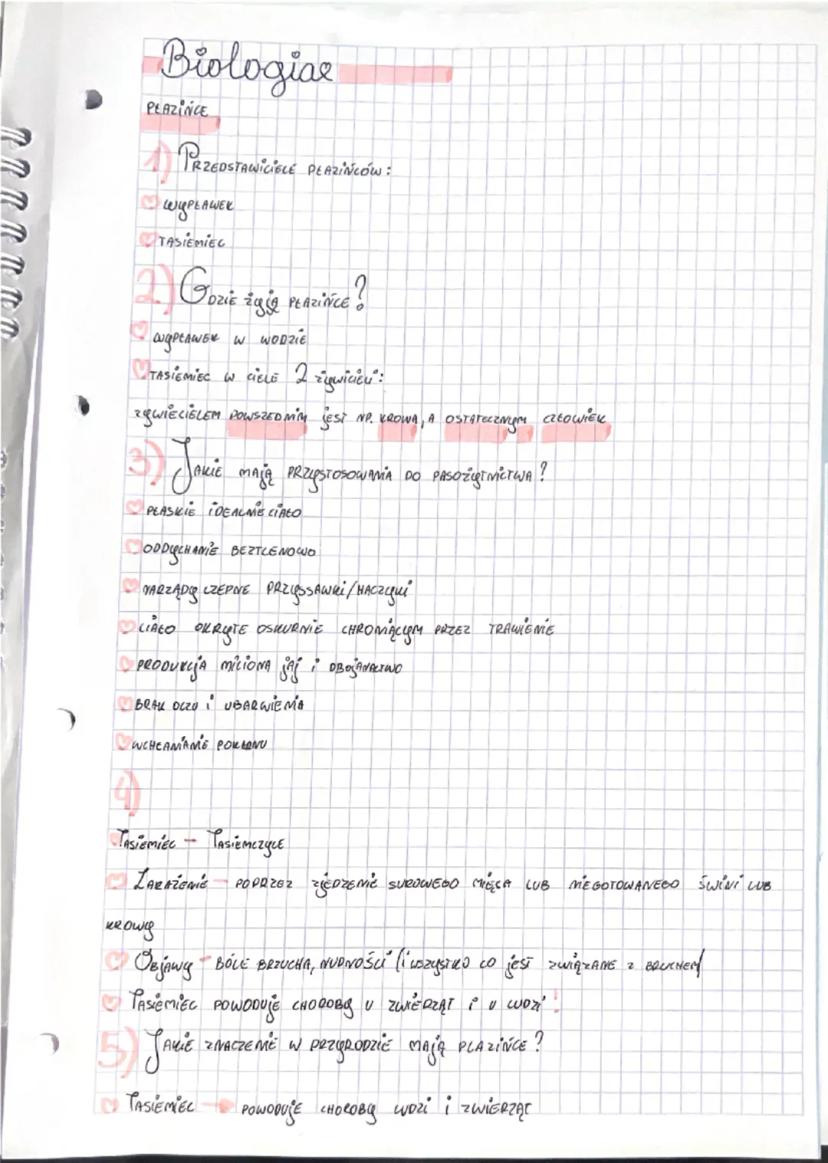 Biologiae
PŁAZIŃCE
1) PRZEDSTAWICIELE PŁAZIŃCÓW:
WYPŁAWEK
TASIEMIEC
2) GDZIE ŻYJĄ PŁAZIŃCE?
WYPŁAWEK W WODZIE
TASIEMIEC W CIELE 2 ŻYWICIELI:
ŻYWIECIELEM POWSZEDNIM JEST NP. KROWA, A OSTATECZNYM CZŁOWIEK
3) JAKIE MAJĄ PRZYSTOSOWANIA DO PASOŻYTNICTWA?
PŁASKIE IDEALNIE CIAŁO
ODDYCHANIE BEZTLENOWO
NARZĄDY CZEPNE PRZYSSAWKI/HACZYKI
CIAŁO OKRYTE OSKURNIE CHRONIĄCYM PRZEZ TRAWIENIE
PRODUKCJA MILIONA JAJ I OBOJNACTWO
BRAK OCZU I UBARWIENIA
WCHŁANIANIE
4)
TASIEMIEC – TASIEMCZYCE
ZARAŻENIE – POPRZEZ ZJEDZENIE SUROWEGO MIĘSA LUB NIEGOTOWANEGO ŚWINI LUB
KROWY
OBJAWY – BÓLE BRZUCHA, NUDNOŚCI (I WSZYSTKO CO JEST ZWIĄZANE Z BRUCHEM)
TASIEMIEC POWODUJE CHOROBY U ZWIERZĄT I U LUDZI!
5) JAKIE ZNACZENIE W PRZYRODZIE MAJĄ PŁAZIŃCE?
TASIEMIEC → POWODUJE CHOROBY LUDZI I ZWIERZĄT